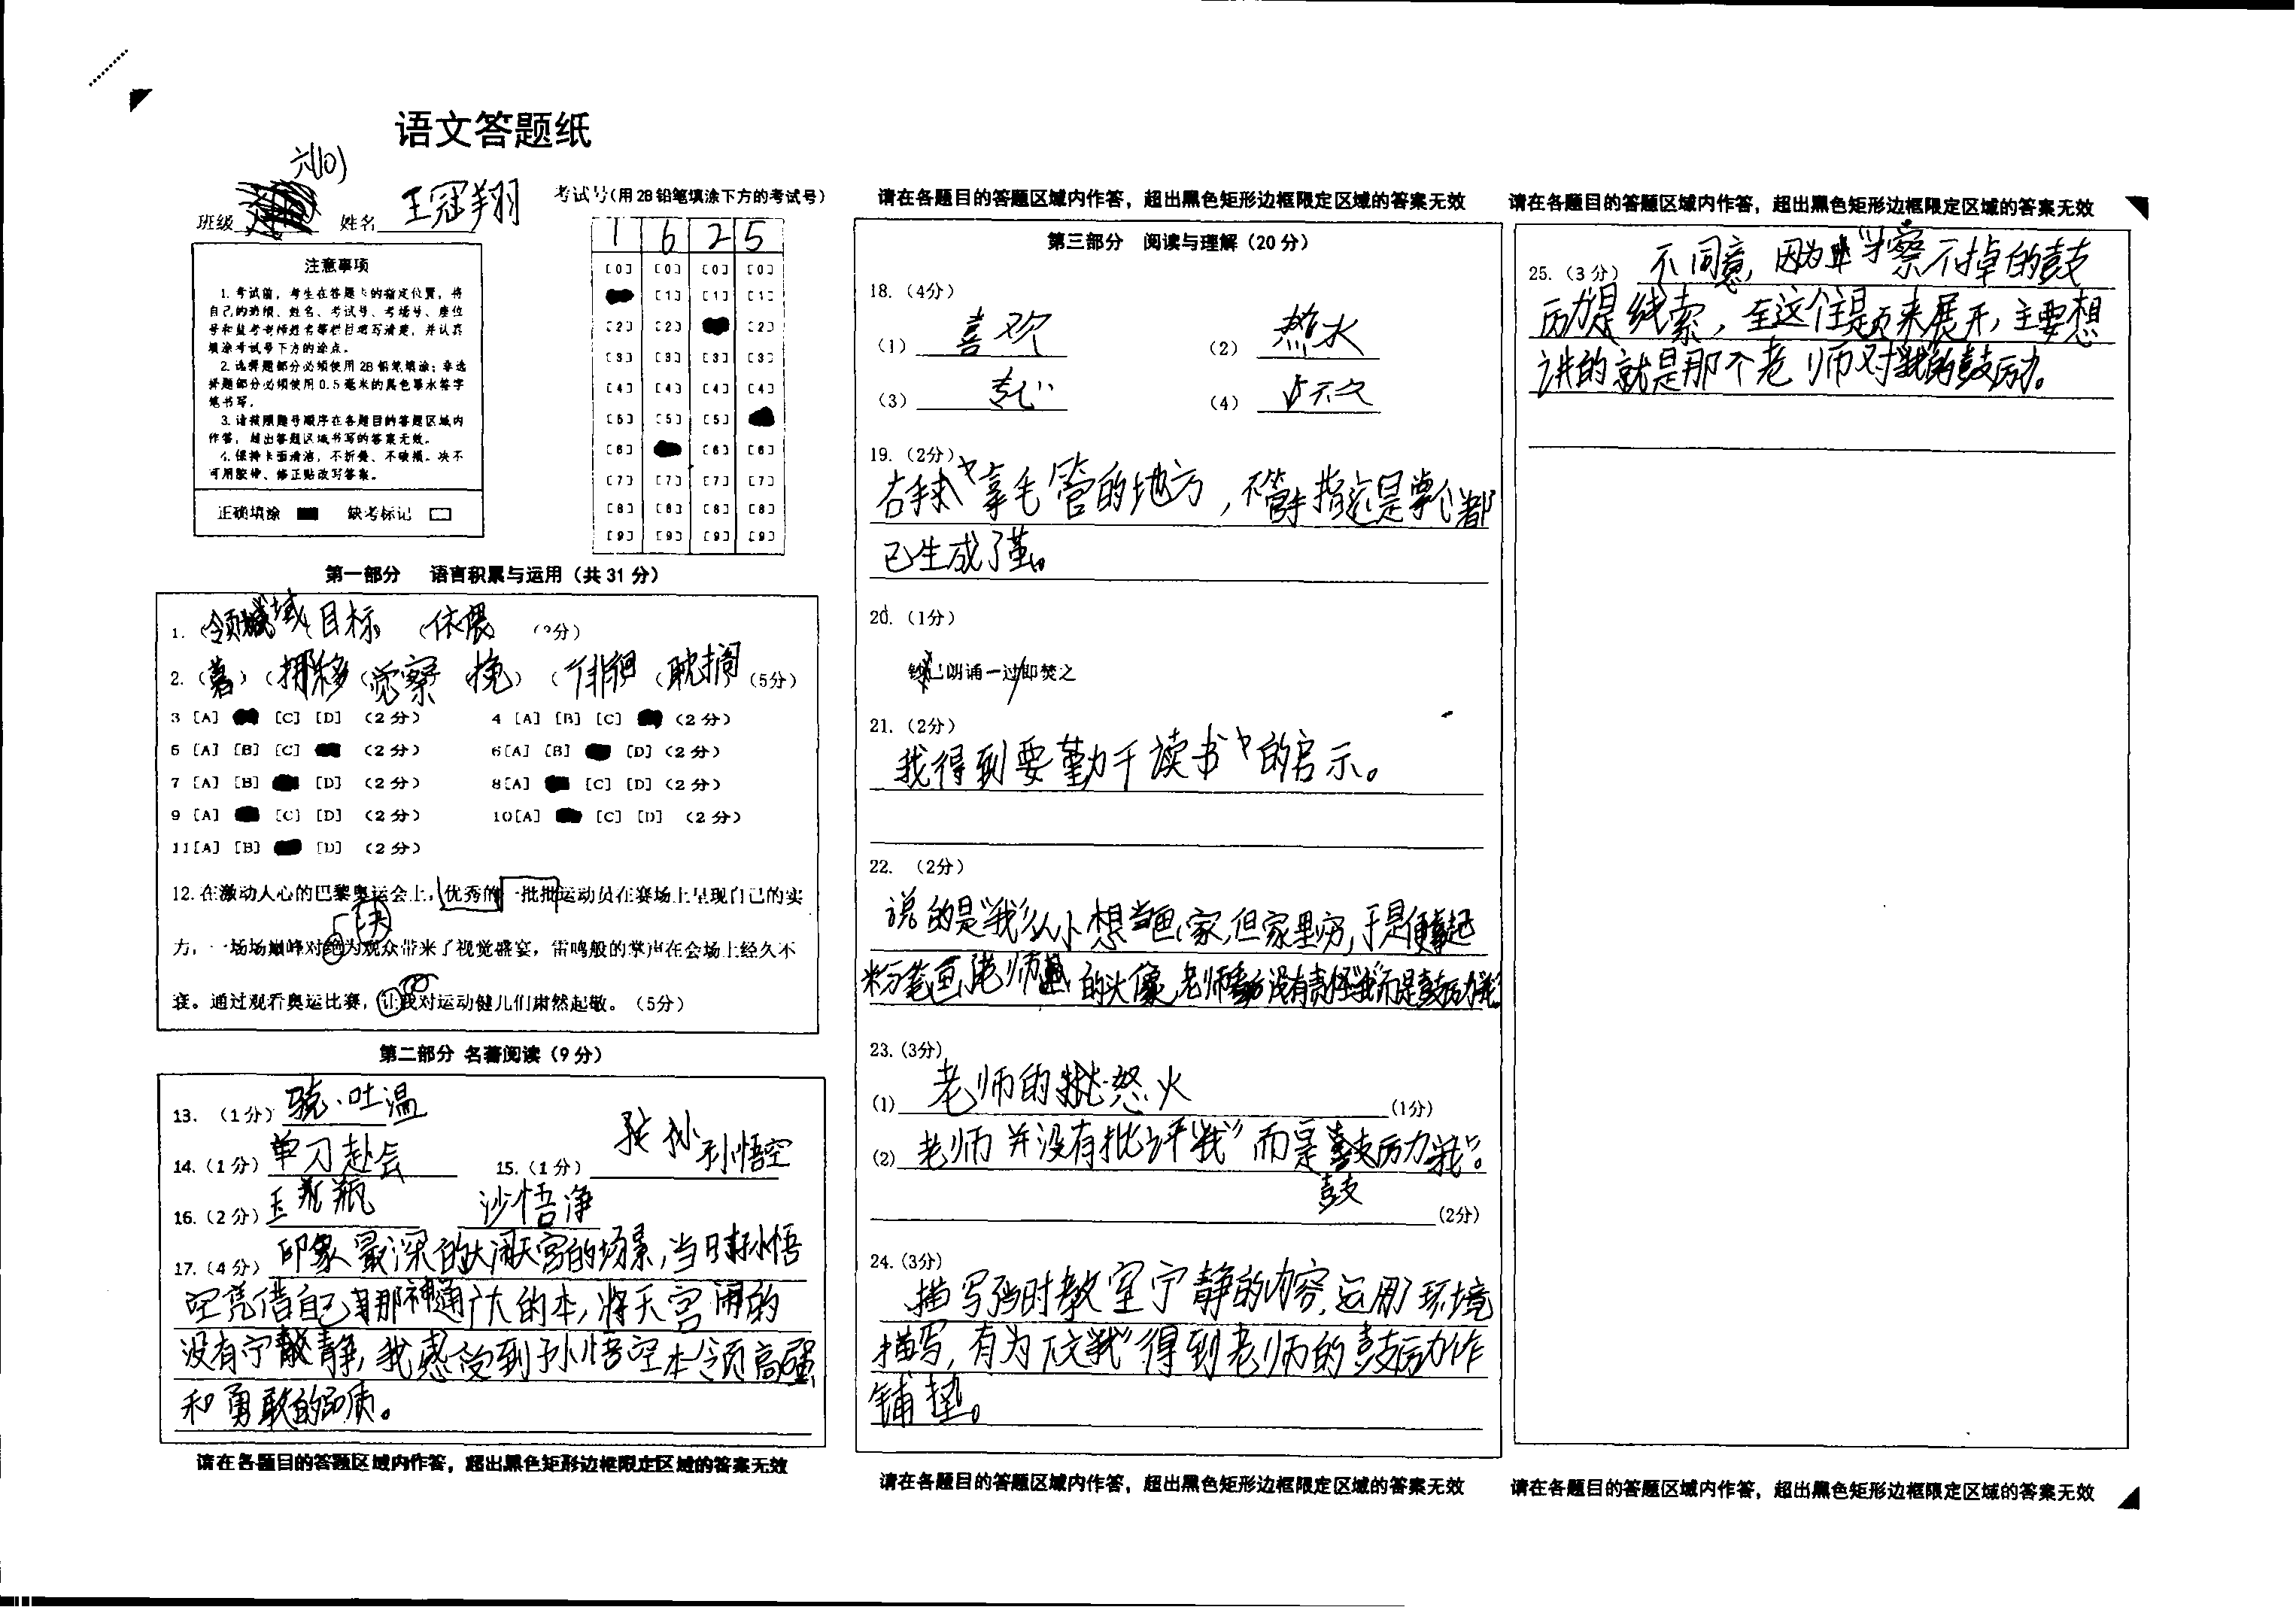 语文答题纸
六(10)
班级 姓名 王冠翔 考试号(用2B铅笔填涂下方的考试号)
1 6 2 5
[0] [0] [0] [0]
[1] [1] [1]
[2] [2] [2]
[3] [3] [3] [3]
[4] [4] [4] [4]
[5] [5] [5]
[6] [6] [6]
[7] [7] [7] [7]
[8] [8] [8] [8]
[9] [9] [9] [9]
注意事项
1.考试前，考生在答题卡的指定位置，将
自己的班级、姓名、考试号、考场号、座位
号和监考老师姓名等栏目填写清楚，并认真
填涂考试号下方的涂点。
2.选择题部分必须使用2B铅笔填涂；非选
择题部分必须使用0.5毫米的黑色墨水签字
笔书写。
3.请按照题号顺序在各题目的答题区域内
作答，超出答题区域书写的答案无效。
4.保持卡面清洁，不折叠、不破损。决不
可用胶带、修正贴改写答案。
正确填涂 缺考标记
第一部分 语言积累与运用（共31分）
1. (领域 目标 (依偎 分)
2. (著) (挪移 (觉察 挽) (徘徊 (耽搁 (5分)
3 [A] [C] [D] (2分) 4 [A] [B] [C] (2分)
5 [A] [B] [C] (2分) 6[A] [B] [D] (2分)
7 [A] [B] [D] (2分) 8[A] [C] [D] (2分)
9 [A] [C] [D] (2分) 10[A] [C] [D] (2分)
11[A] [B] [D] (2分)
12.在激动人心的巴黎奥运会上，优秀的一批批运动员在赛场上呈现自己的实
决
力，一场场巅峰对绝为观众带来了视觉盛宴，雷鸣般的掌声在会场上经久不
衰。通过观看奥运比赛，让我对运动健儿们肃然起敬。（5分）
第二部分 名著阅读（9分）
13.（1分）骁·吐温
14.（1分）单刀赴会 15.（1分）孙悟空
16.（2分）玉瓶 沙悟净
17.（4分）印象最深的大闹天宫的场景，当时孙悟
空凭借自己那神通广大的本，将天宫闹的
没有宁静，我感受到孙悟空本领高强
和勇敢的品质。
请在各题目的答题区域内作答，超出黑色矩形边框限定区域的答案无效
请在各题目的答题区域内作答，超出黑色矩形边框限定区域的答案无效
第三部分 阅读与理解（20分）
18.（4分）
(1) 喜欢 (2) 热水
(3) (4)
19.（2分）
右手拿毛管的地方，不管手指还是掌心都
已生成了茧。
20.（1分）
钞已朗诵一过即焚之
21.（2分）
我得到要勤于读书的启示。
22.（2分）
说的是“我”从小想当画家，但家里穷，于是便拿起
粉笔画老师的头像，老师没有责怪“我”而是鼓励“我”
23.（3分）
(1) 老师的怒火 (1分)
(2) 老师并没有批评“我”而是鼓励“我”。
鼓
(2分)
24.（3分）
描写当时教室宁静的内容，运用了环境
描写，有为下文“我”得到老师的鼓励作
铺垫。
请在各题目的答题区域内作答，超出黑色矩形边框限定区域的答案无效
请在各题目的答题区域内作答，超出黑色矩形边框限定区域的答案无效
25.（3分）不同意，因为“擦不掉的鼓
励”是线索，至这个主题来展开，主要想
讲的就是那个老师对“我”的鼓励。
请在各题目的答题区域内作答，超出黑色矩形边框限定区域的答案无效